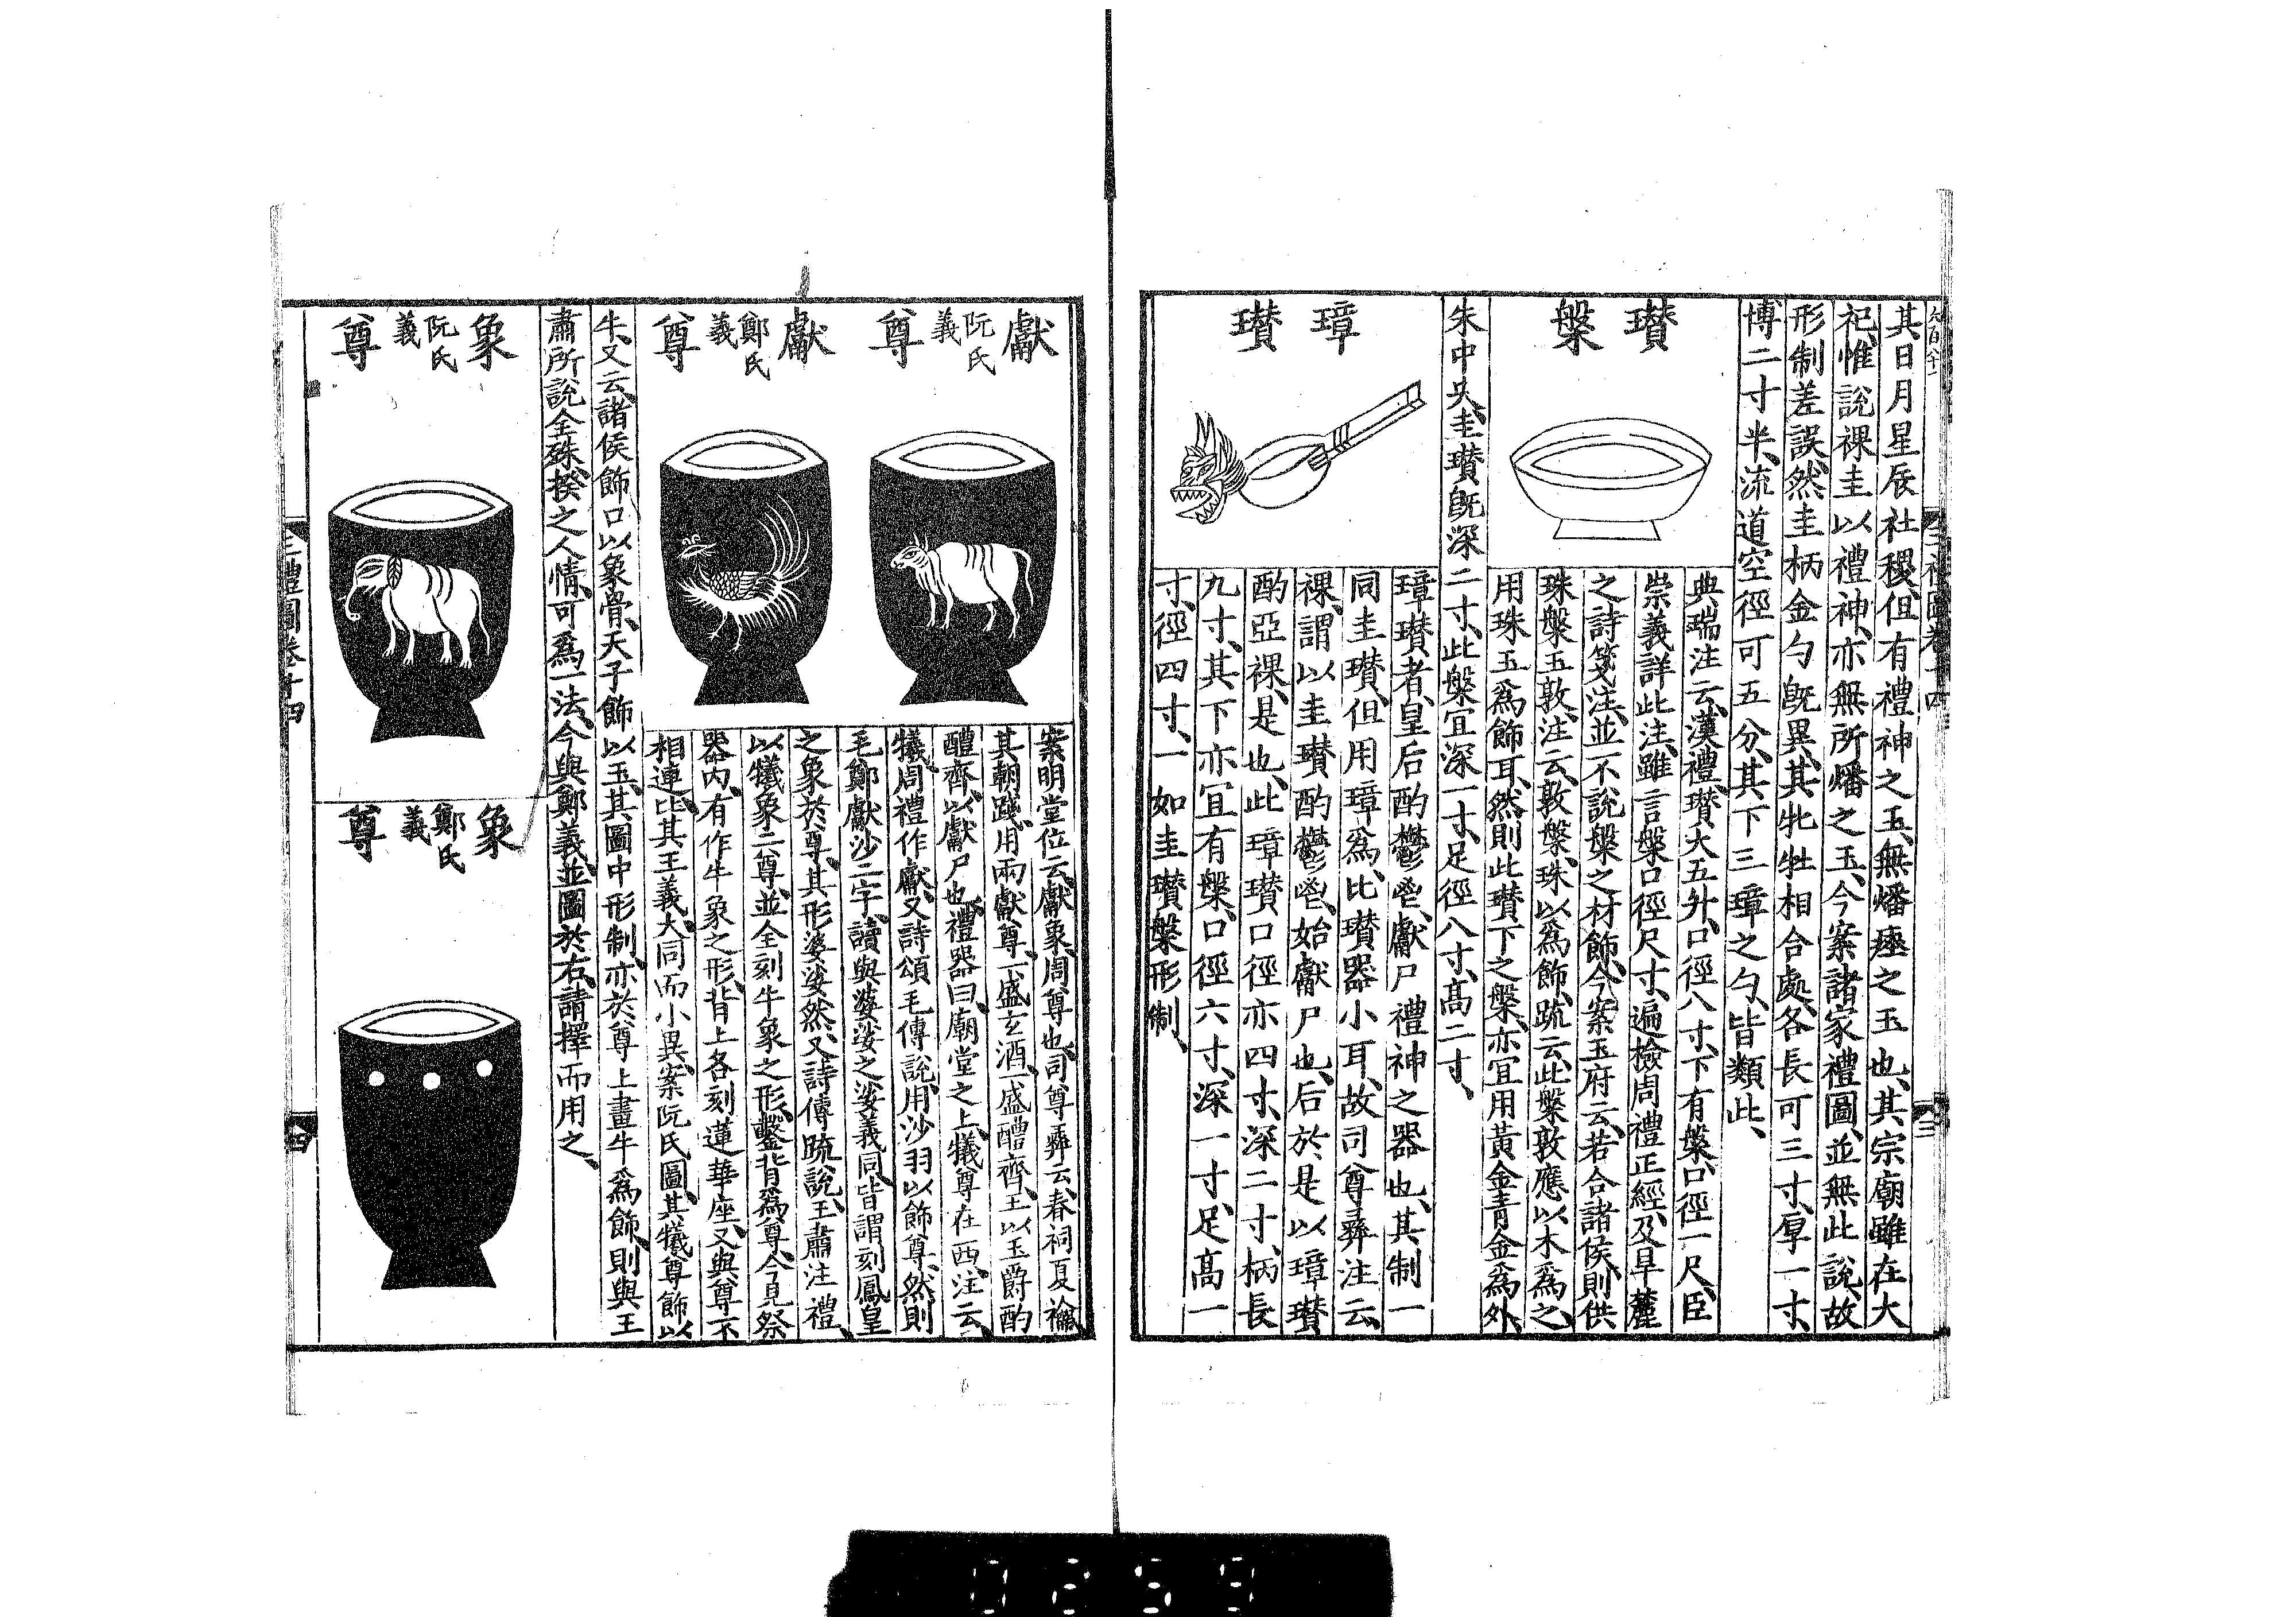 其日月星辰社稷但有禮神之玉無燔瘞之玉也其宗廟雖在大
祀惟說祼圭以禮神亦無所燔之玉今案諸家禮圖並無此說故
形制差誤然圭柄金勺旣異其牝牡相合處各長可三寸厚一寸
博二寸半流道空徑可五分其下三璋之勺皆類此
瓚槃
典瑞注云漢禮瓚大五升口徑八寸下有槃口徑一尺臣
崇義詳此注雖言槃口徑尺寸遍檢周禮正經及旱麓
之詩箋注並不說槃之材飾今案玉府云若合諸侯則供
珠槃玉敦注云敦槃珠以爲飾疏云此槃敦應以木爲之
用珠玉爲飾耳然則此瓚下之槃亦宜用黃金青金爲外
朱中央圭瓚旣深二寸此槃宜深一寸足徑八寸高二寸
璋瓚
璋瓚者皇后酌鬱鬯獻尸禮神之器也其制一
同圭瓚但用璋爲比瓚器小耳故司尊彝注云
祼謂以圭瓚酌鬱鬯始獻尸也后於是以璋瓚
酌亞祼是也此璋瓚口徑亦四寸深二寸柄長
九寸其下亦宜有槃口徑六寸深一寸足高一
寸徑四寸一如圭瓚槃形制
三禮圖卷十四
三
獻尊 阮氏義
獻尊 鄭氏義
案明堂位云獻象周尊也司尊彝云春祠夏禴
其朝踐用兩獻尊一盛玄酒一盛醴齊王以玉爵酌
醴齊以獻尸也禮器曰廟堂之上犧尊在西注云
犧周禮作獻又詩頌毛傳說用沙羽以飾尊然則
毛鄭獻沙二字讀與婆娑之娑義同皆謂刻鳳皇
之象於尊其形婆娑然又詩傳疏說王肅注禮
以犧象二尊並全刻牛象之形鑿背爲尊今見祭
器內有作牛象之形背上各刻蓮華座又與尊不
相連比其王義大同而小異案阮氏圖其犧尊飾以
牛又云諸侯飾口以象骨天子飾以玉其圖中形制亦於尊上畫牛爲飾則與王
肅所說全殊揆之人情可爲一法今與鄭義並圖於右請擇而用之
象尊 阮氏義
象尊 鄭氏義
三禮圖卷十四
四
0259